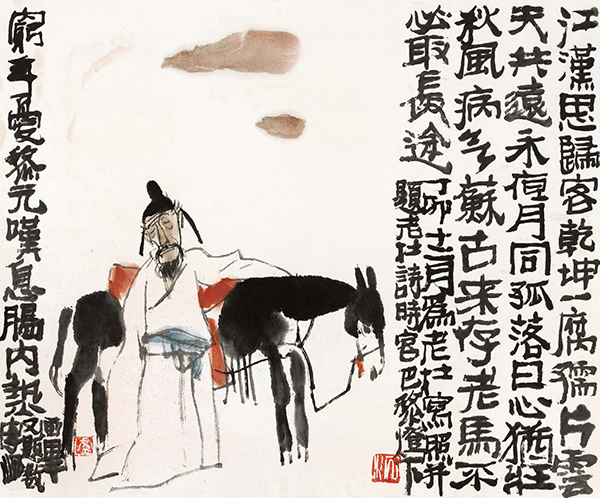 江漢思歸客乾坤一腐儒片雲
天共遠永夜月同孤落日心猶壯
秋風病欲蘇古來存老馬不
必取長途
丁卯十一月為老杜寫照并
題老杜詩時客巴黎燈下
窮年憂黎元嘆息腸內熱